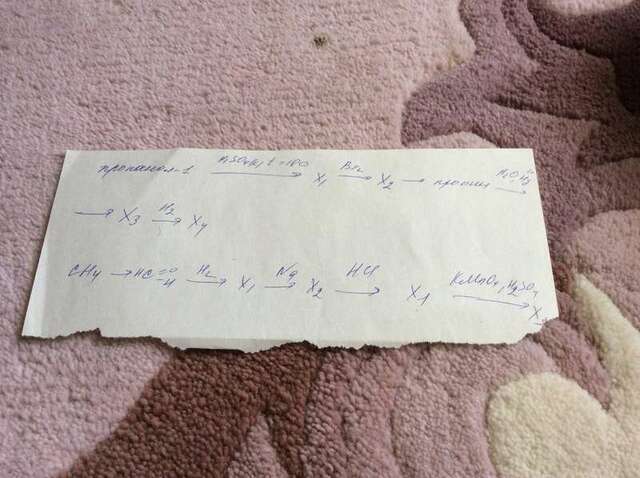 пропанол-1 H2SO4(к), t=180 → X1 Br2 → X2 → пропин H2O, Hg →
→ X3 H2 → X4
CH4 → HC=O -H H2 → X1 Na → X2 HCl → X1 KMnO4, H2SO4 → X3